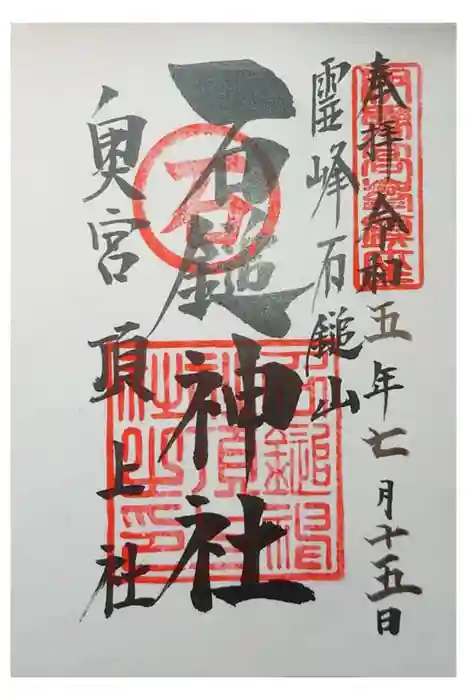 奉拝 令和五年七月十五日
霊峰石鎚山
石鎚神社
奥宮頂上社
石
石鎚神社頂上社之印